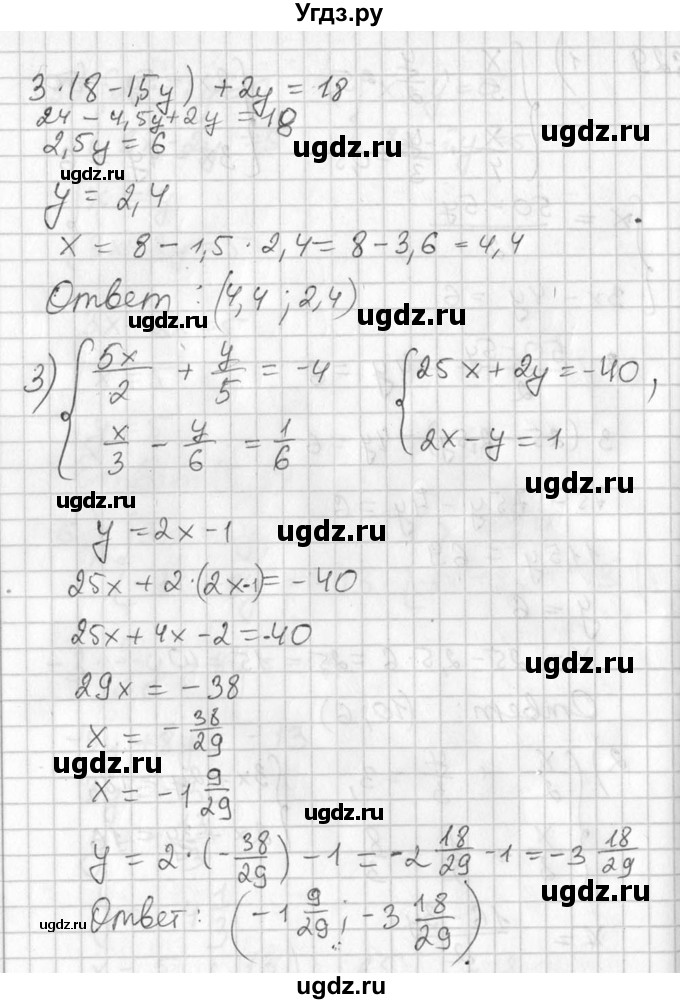 Угдз.ру
3·(8 - 1,5y) + 2y = 18
24 - 4,5y + 2y = 18
ugdz.ru ugdz.ru
2,5y = 6
ugdz.ru
y = 2,4
x = 8 - 1,5 · 2,4 = 8 - 3,6 = 4,4
Ответ : (4,4 ; 2,4)
ugdz.ru ugdz.ru ugdz.ru
3) { 5x/2 + y/5 = -4 { 25x + 2y = -40,
x/3 - y/6 = 1/6 2x - y = 1
ugdz.ru ugdz.ru
y = 2x - 1
ugdz.ru
25x + 2·(2x-1) = -40
25x + 4x - 2 = -40
ugdz.ru
29x = -38
x = - 38/29
ugdz.ru
x = -1 9/29
ugdz.ru
y = 2·(- 38/29) - 1 = -2 18/29 - 1 = -3 18/29
ugdz.ru
Ответ: (-1 9/29 ; -3 18/29).
ugdz.ru
ugdz.ru ugdz.ru